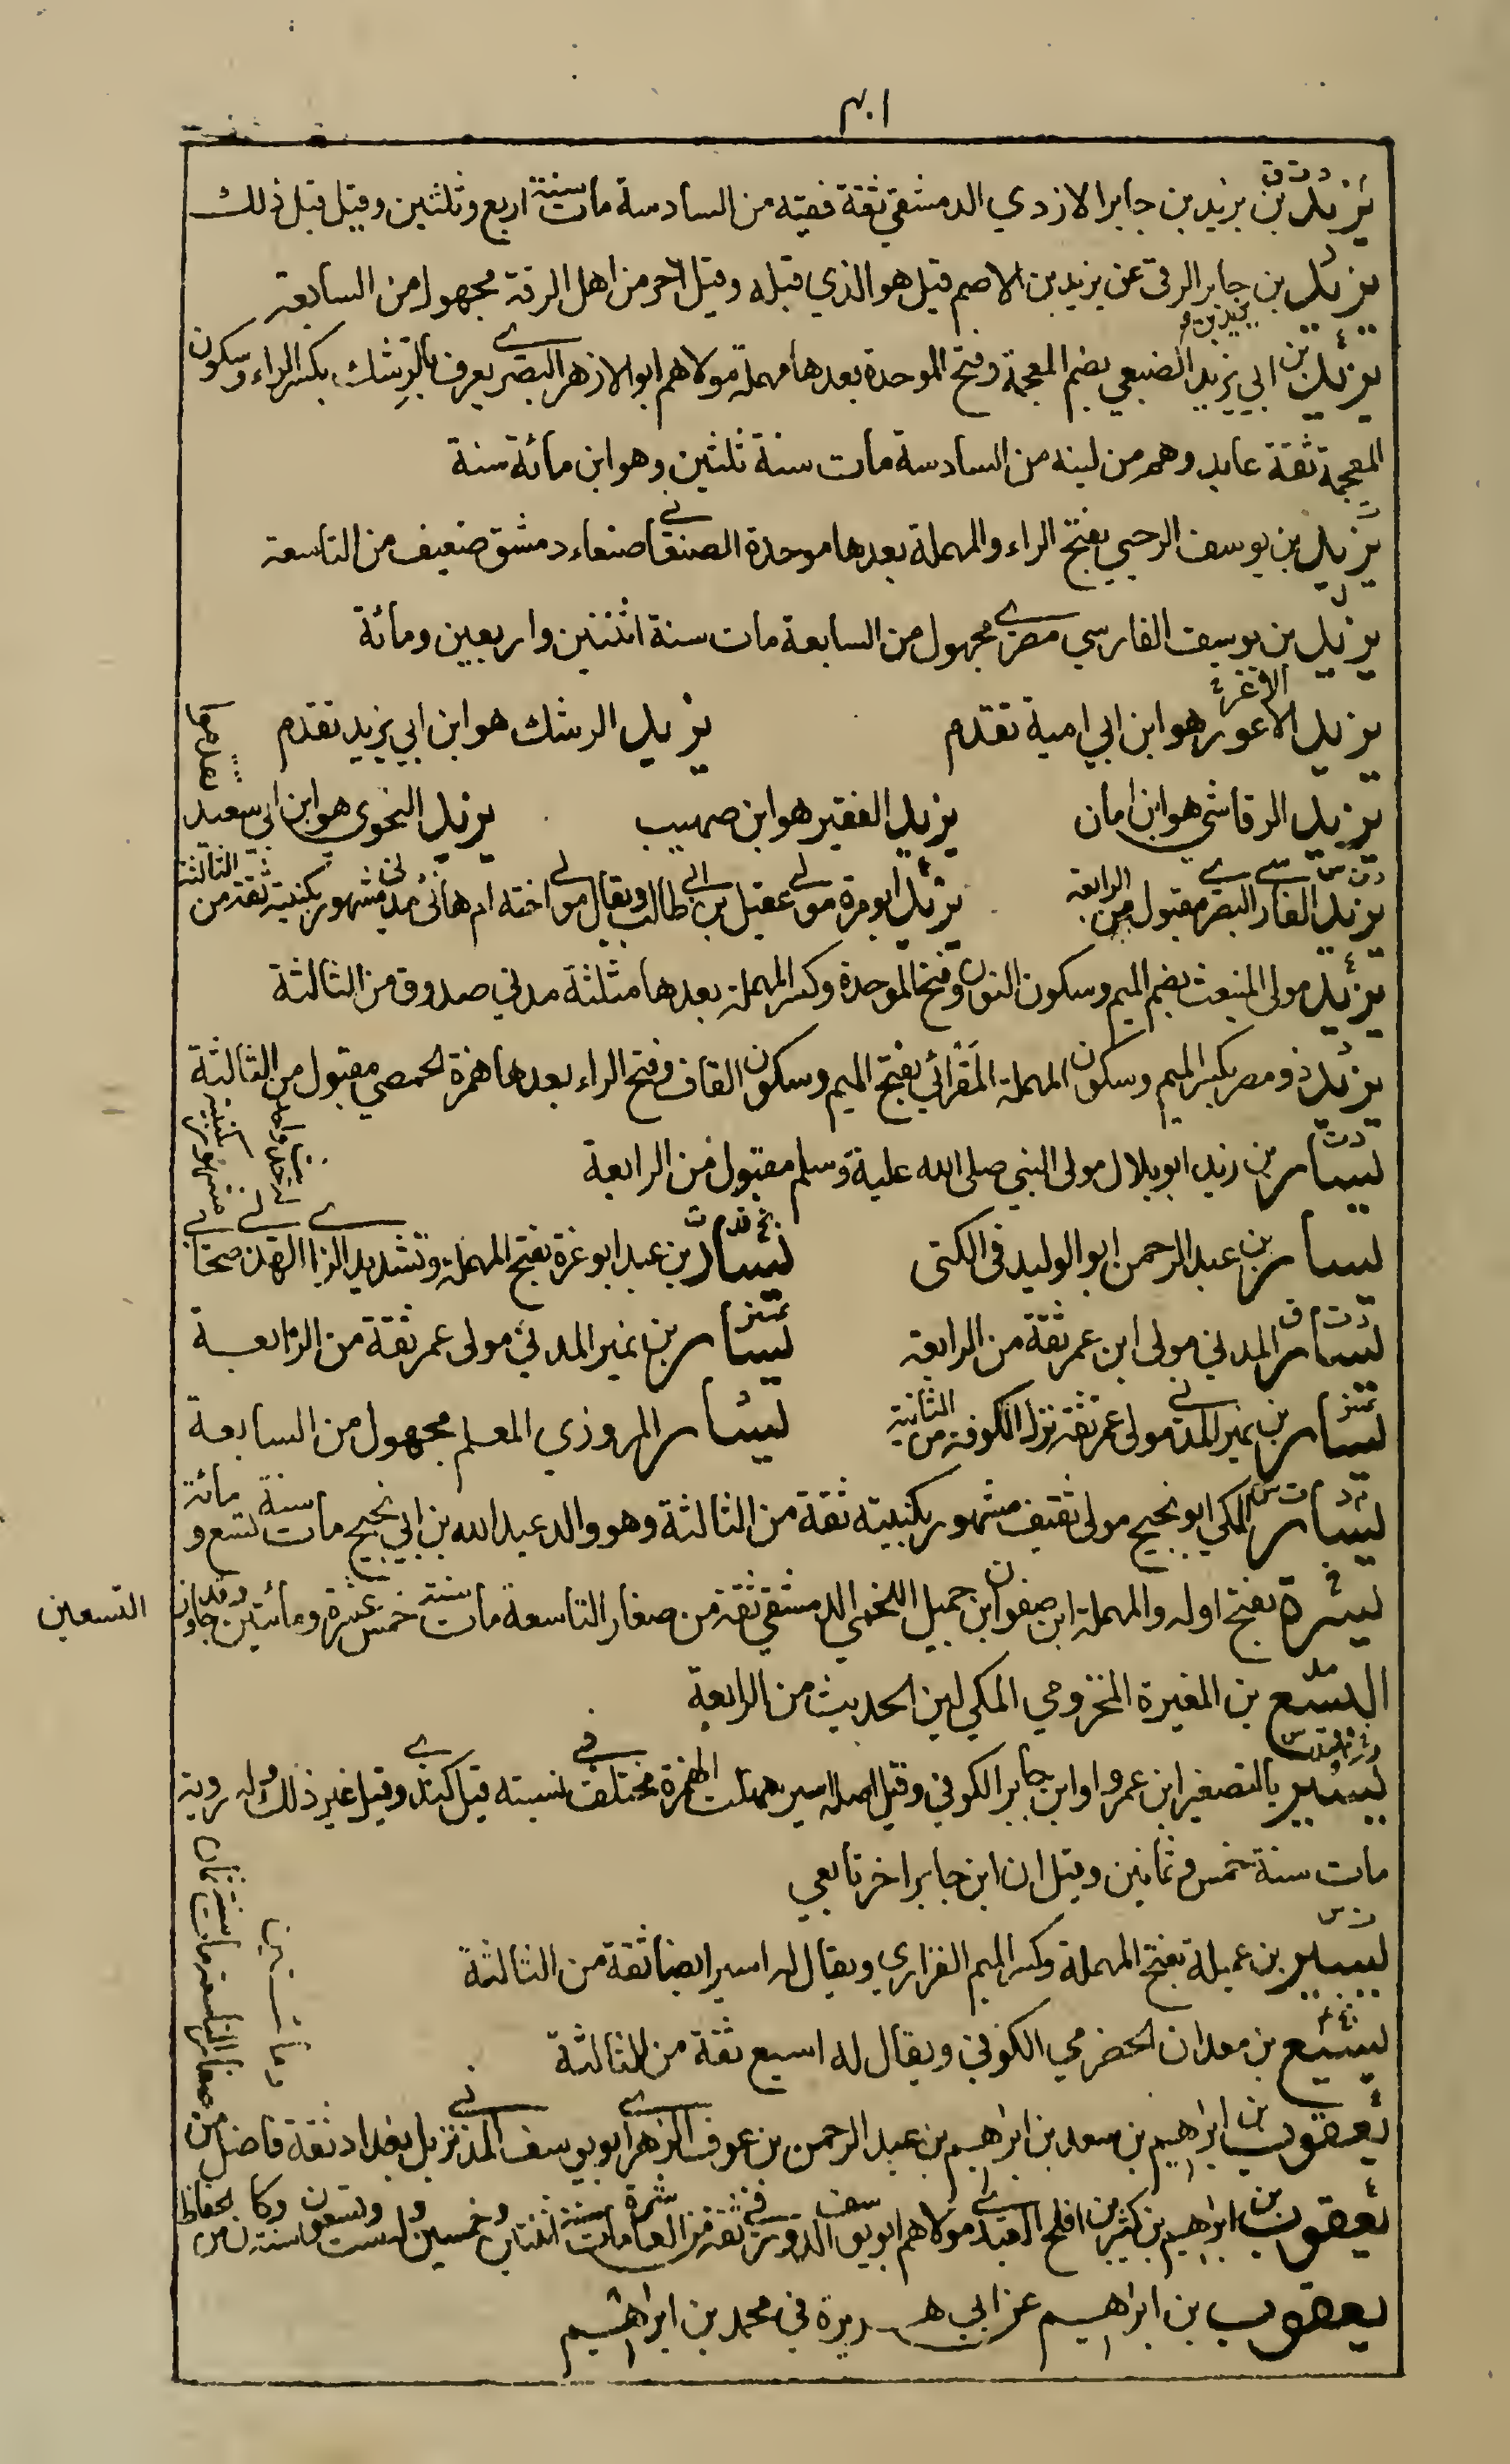 ٤٠١
يزيد بن يزيد بن جابر الازدي الدمشقي ثقة فقيه من السادسة مات سنة اربع وثلثين وقيل قبل ذلك
يزيد بن جابر الرقي عن يزيد بن الاصم قيل هو الذي قبله وقيل اخر من اهل الرقة مجهول من السابعة
يزيد بن ابي يزيد الضبعي بضم المعجمة وفتح الموحدة بعدها مهملة مولاهم ابو الازهر البصري يعرف بالرشك بكسر الراء وسكون
المعجمة ثقة عابد وهم من لينه من السادسة مات سنة ثلثين وهو ابن مائة سنة
يزيد بن يوسف الرحبي بفتح الراء والمهملة بعدها موحدة الصنعاني صنعاء دمشق ضعيف من التاسعة
يزيد بن يوسف الفارسي مصري مجهول من السابعة مات سنة اثنتين واربعين ومائة
يزيد الاعور هو ابن ابي امية تقدم يزيد الرشك هو ابن ابي يزيد تقدم
يزيد الرقاشي هو ابن امان يزيد الفقير هو ابن صهيب يزيد النحوي هو ابن ابي سعيد
تقدموا
يزيد الفارسي البصري مقبول من الرابعة يزيد ابو مرة مولى عقيل بن ابي طالب ويقال مولى اخته ام هانئ مدني مشهور بكنيته ثقة من الثالثة
يزيد مولى المنبعث بضم الميم وسكون النون وفتح الموحدة وكسر المهملة بعدها مثلثة مدني صدوق من الثالثة
يزيد ذو مصر بكسر الميم وسكون المهملة المقرائي بفتح الميم وسكون القاف وفتح الراء بعدها همزة الحمصي مقبول من الثالثة
يسار بن زيد ابو بلال مولى النبي صلى الله عليه وسلم مقبول من الرابعة
يسار بن عبد الرحمن ابو الوليد في الكنى يسار بن عبد ابو عزة بفتح المهملة وتشديد الزاي الهذلي صحابي
له حديث واحد
مشهور بكنيته
يسار المدني مولى ابن عمر ثقة من الرابعة يسار بن نمير المدني مولى عمر ثقة من الرابعة
يسار بن نمير المدني مولى عمر ثقة نزل الكوفة من الثانية يسار المروزي المعلم مجهول من السابعة
يسار المكي ابو نجيح مولى ثقيف مشهور بكنيته ثقة من الثالثة وهو والد عبد الله بن ابي نجيح مات سنة تسع ومائة
يسرة بفتح اوله والمهملة ابن صفوان بن جميل اللخمي الدمشقي ثقة من صغار التاسعة مات سنة خمس عشرة ومائتين وقد جاوز
التسعين
اليسع بن المغيرة المخزومي المكي لين الحديث من الرابعة
يسير بالتصغير ابن عمرو او ابن جابر الكوفي وقيل اصله اسير فسهلت الهمزة مختلف في نسبته قيل كندي وقيل غير ذلك وله روية
مات سنة خمس وثمانين وقيل ان ابن جابر اخر تابعي
يسير بن عميلة بفتح المهملة وكسر الميم الفزاري ويقال له اسير ايضا ثقة من الثالثة
يسيع بن معدان الحضرمي الكوفي ويقال له اسيع ثقة من الثالثة
يعقوب بن ابراهيم بن سعد بن ابراهيم بن عبد الرحمن بن عوف الزهري ابو يوسف المدني نزيل بغداد ثقة فاضل من
صغار التاسعة مات سنة ثمان
ومائتين
يعقوب بن ابراهيم بن كثير بن افلح العبدي مولاهم ابو يوسف الدورقي ثقة من العاشرة مات سنة اثنتين وخمسين وله ست وتسعون سنة وكان من الحفاظ
يعقوب بن ابراهيم عن ابي هريرة في محمد بن ابراهيم